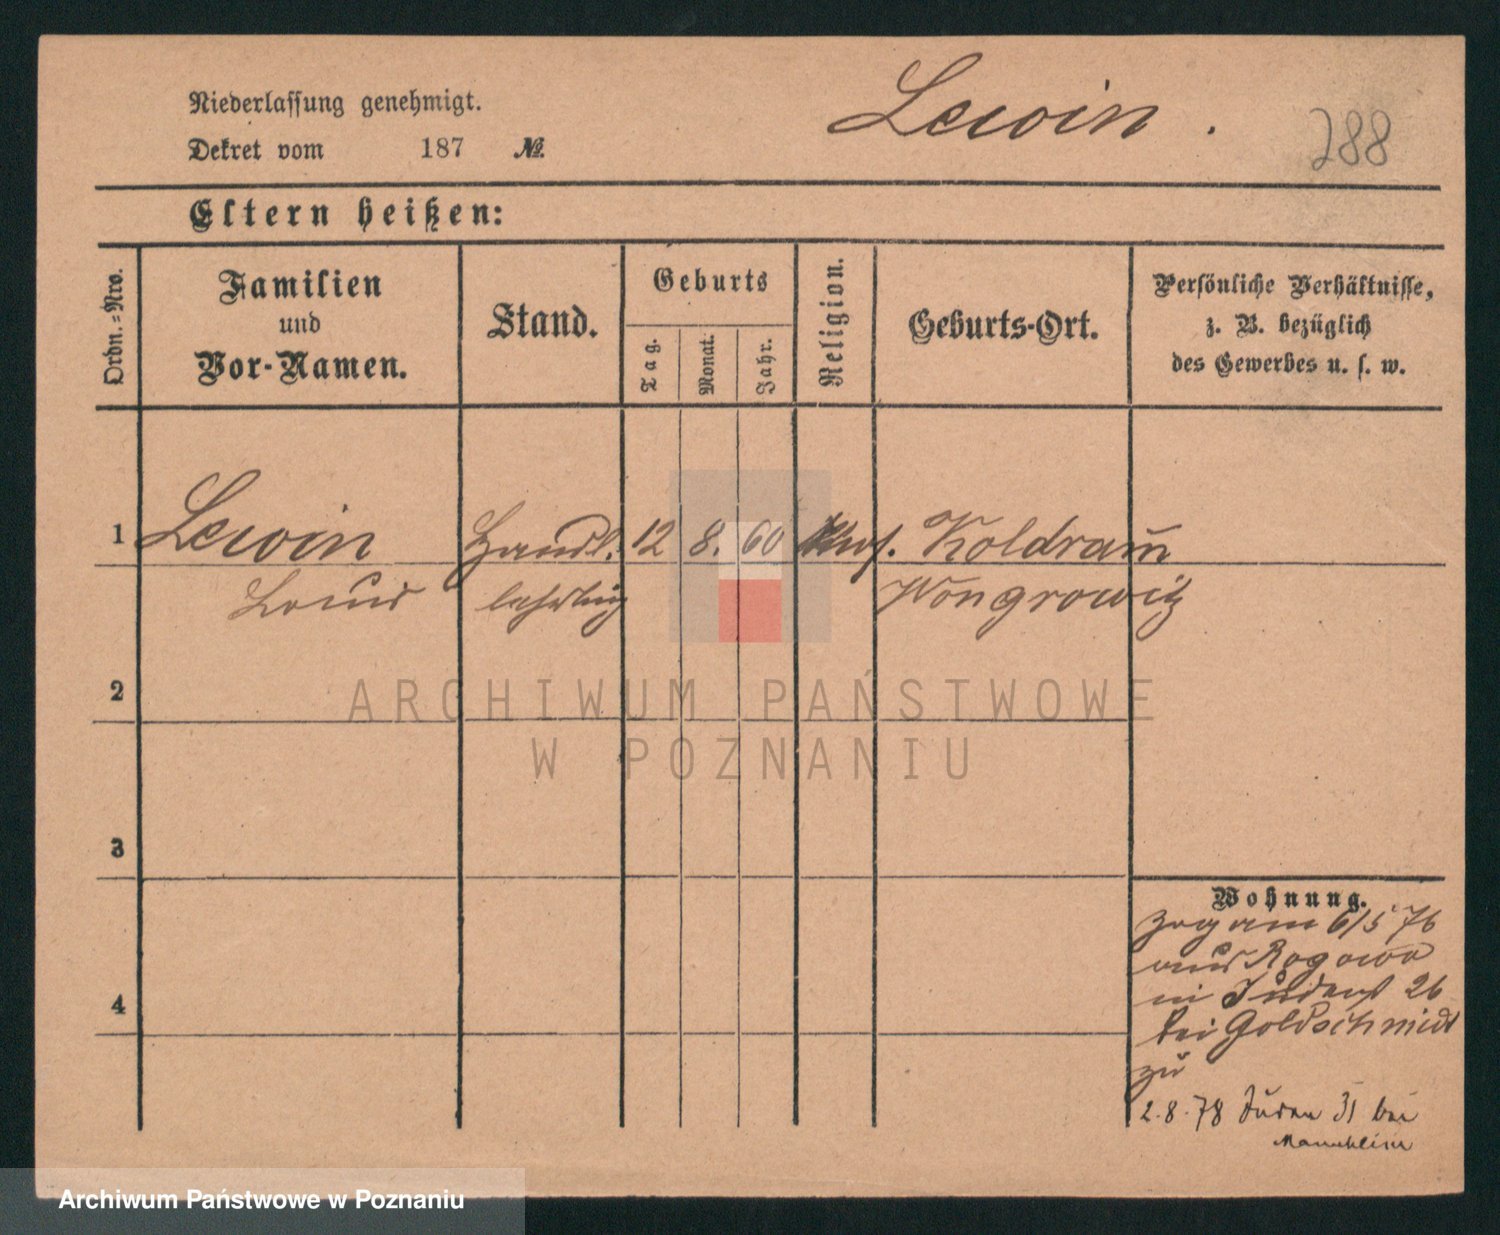 Niederlassung genehmigt.
Lewin.
288
Dekret vom 187 №
Eltern heißen:
Ordn.-Nro.
Familien
und
Vor-Namen.
Stand.
Geburts
Tag.
Monat.
Jahr.
Religion.
Geburts-Ort.
Persönliche Verhältnisse,
z. B. bezüglich
des Gewerbes u. s. w.
1 Lewin Handl. 12 8. 60 Koldram
Louis lehrling Wongrowitz
2
3
4
Wohnung.
zog am 6/5 76
aus Rogowo
in Judenst 26
bei Goldschmidt
zu
2.8.78 Juden 31 bei
Mannheim
ARCHIWUM PAŃSTWOWE
W POZNANIU
Archiwum Państwowe w Poznaniu